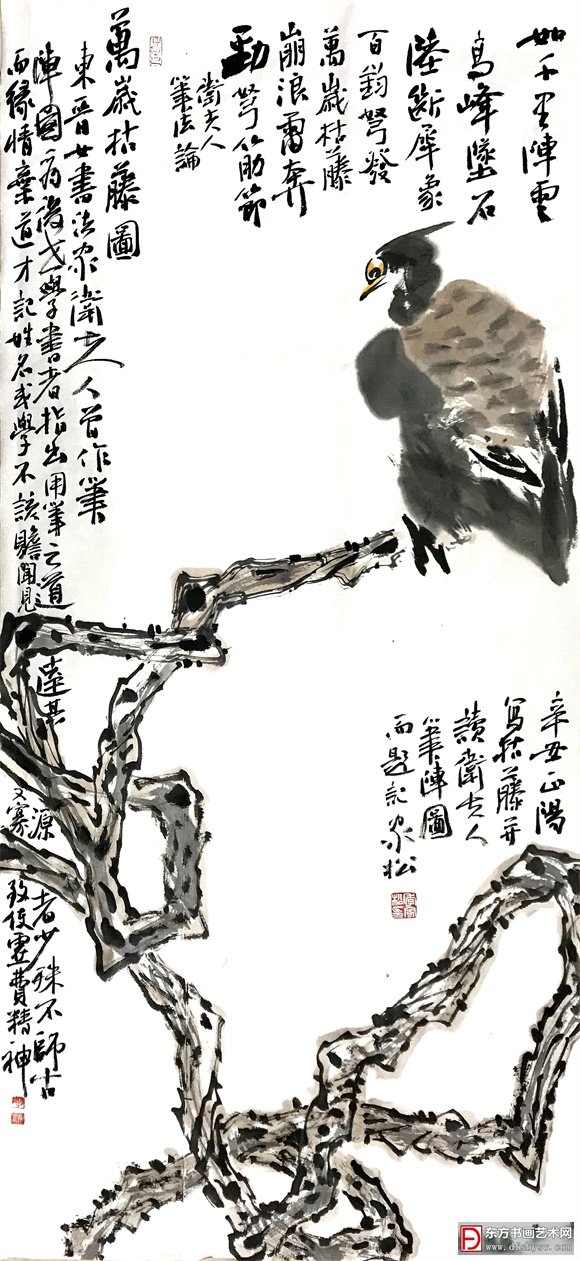 如千里陣雲
高峰墜石
陸斷犀象
百鈞弩發
萬歲枯藤
崩浪雷奔
勁弩筋節
衛夫人
筆法論
萬歲枯藤圖
東晉女書法家衛夫人曾作筆
陣圖 為後之學書者指出用筆之道 達其源者少 殊不師古
而緣情棄道 才記姓名 或學不該贍 聞見又寡 致使虛費精神
辛丑正陽
寫枯藤并
讀衛夫人
筆陣圖
而題記 家松
东方书画艺术网
www.dfshysw.com